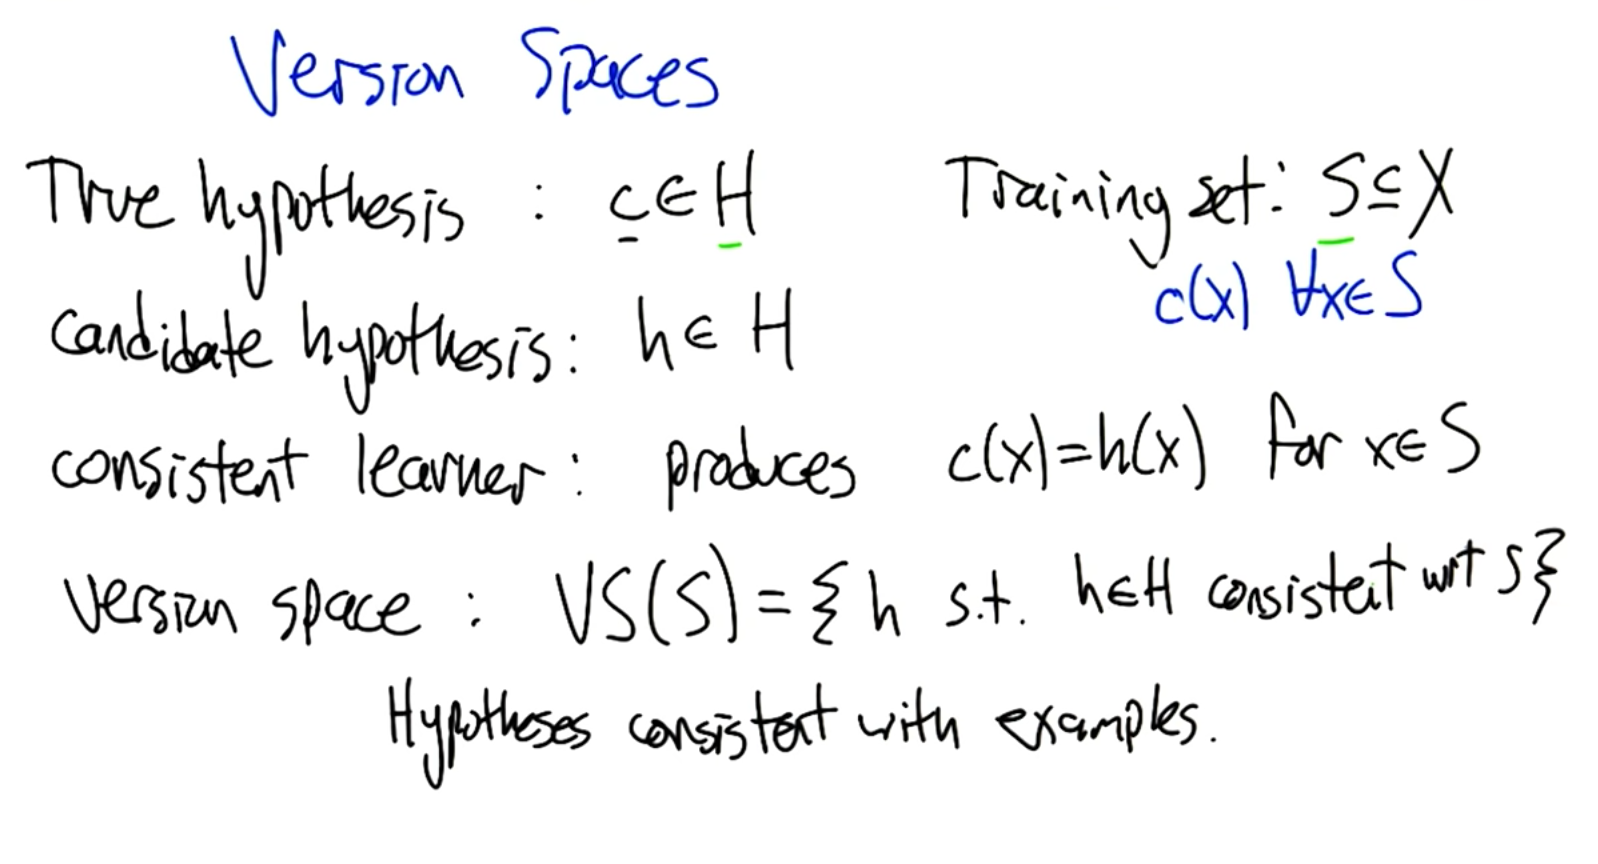 Version Spaces
True hypothesis : c ∈ H
Training set: S ⊆ X
c(x) ∀x ∈ S
candidate hypothesis: h ∈ H
consistent learner: produces c(x)=h(x) for x ∈ S
version space: VS(S) = { h s.t. h ∈ H consistent wrt S }
Hypotheses consistent with examples.